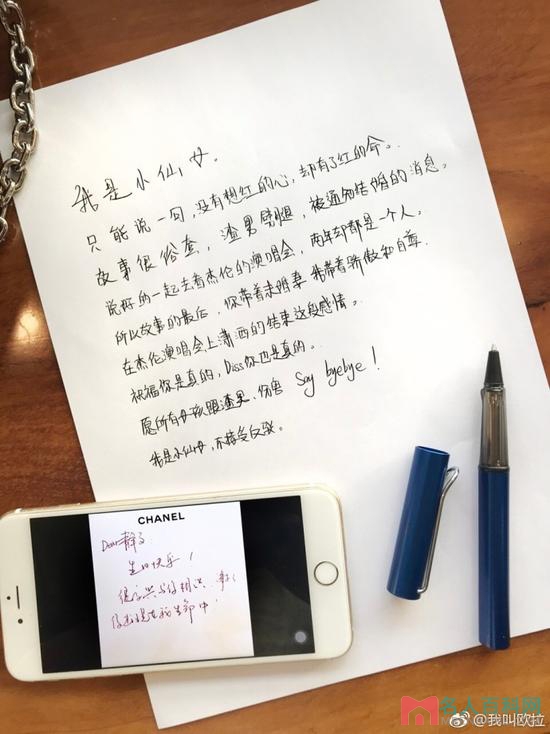 我是小仙女。
只能说一句,没有想红的心,却有了红的命。
故事很俗套,渣男劈腿,被通知结婚的消息。
说好的一起去看杰伦的演唱会,两年却都是一个人。
所以故事的最后,你带着未婚妻 我带着骄傲和自尊
在杰伦演唱会上潇洒的结束这段感情。
祝福你是真的,Diss你也是真的。
愿所有女孩跟渣男、伤害 Say byebye!
我是小仙女,不接受反驳。
CHANEL
Dear 静子
生日快乐!
很高兴与你相识
你出现在我生命中!
名人百科网
@我叫欧拉